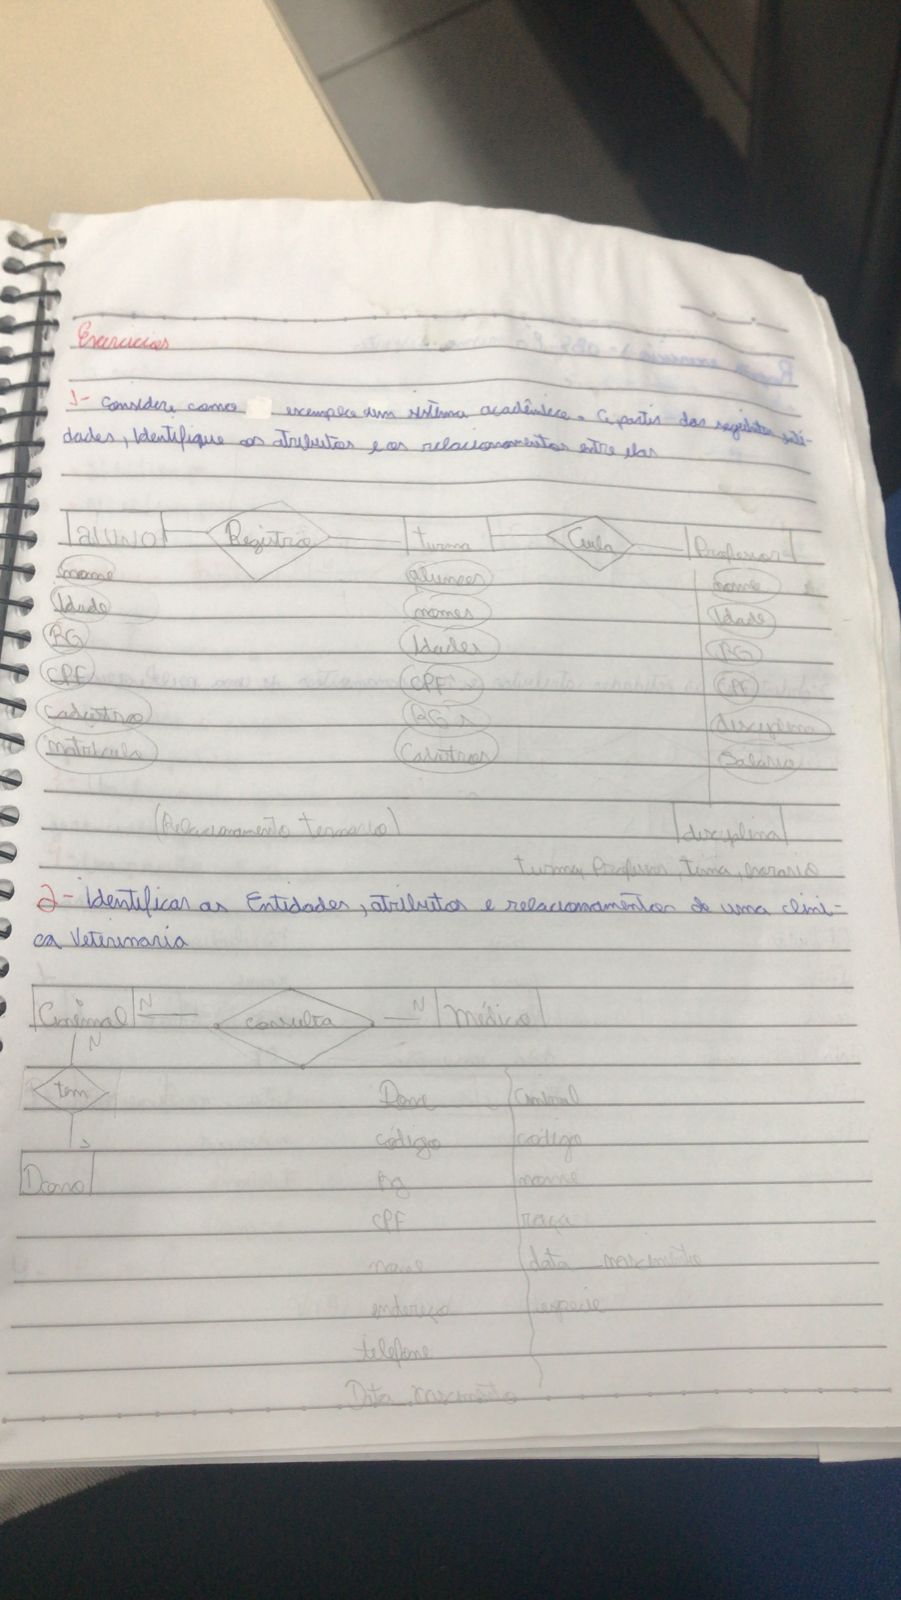 Exercicios
1- Considere como exemplo um sistema acadêmico. A partir das seguintes enti-
dades, Identifique os atributos e os relacionamentos entre elas
aluno Registro turma Professor
nome alunos nome
Idade nomes Idade
RG Idades RG
CPF CPF's CPF
cadastro RG's disciplina
matricula Salário
(Relacionamento ternario) disciplina
turma, Professor, horario
2- Identificar as Entidades, atributos e relacionamentos de uma clini-
ca Veterinaria
Animal N consulta N Médico
N
tem Dono Animal
código código
Dono Rg nome
CPF raça
nome data nascimento
endereço especie
telefone
Data nascimento